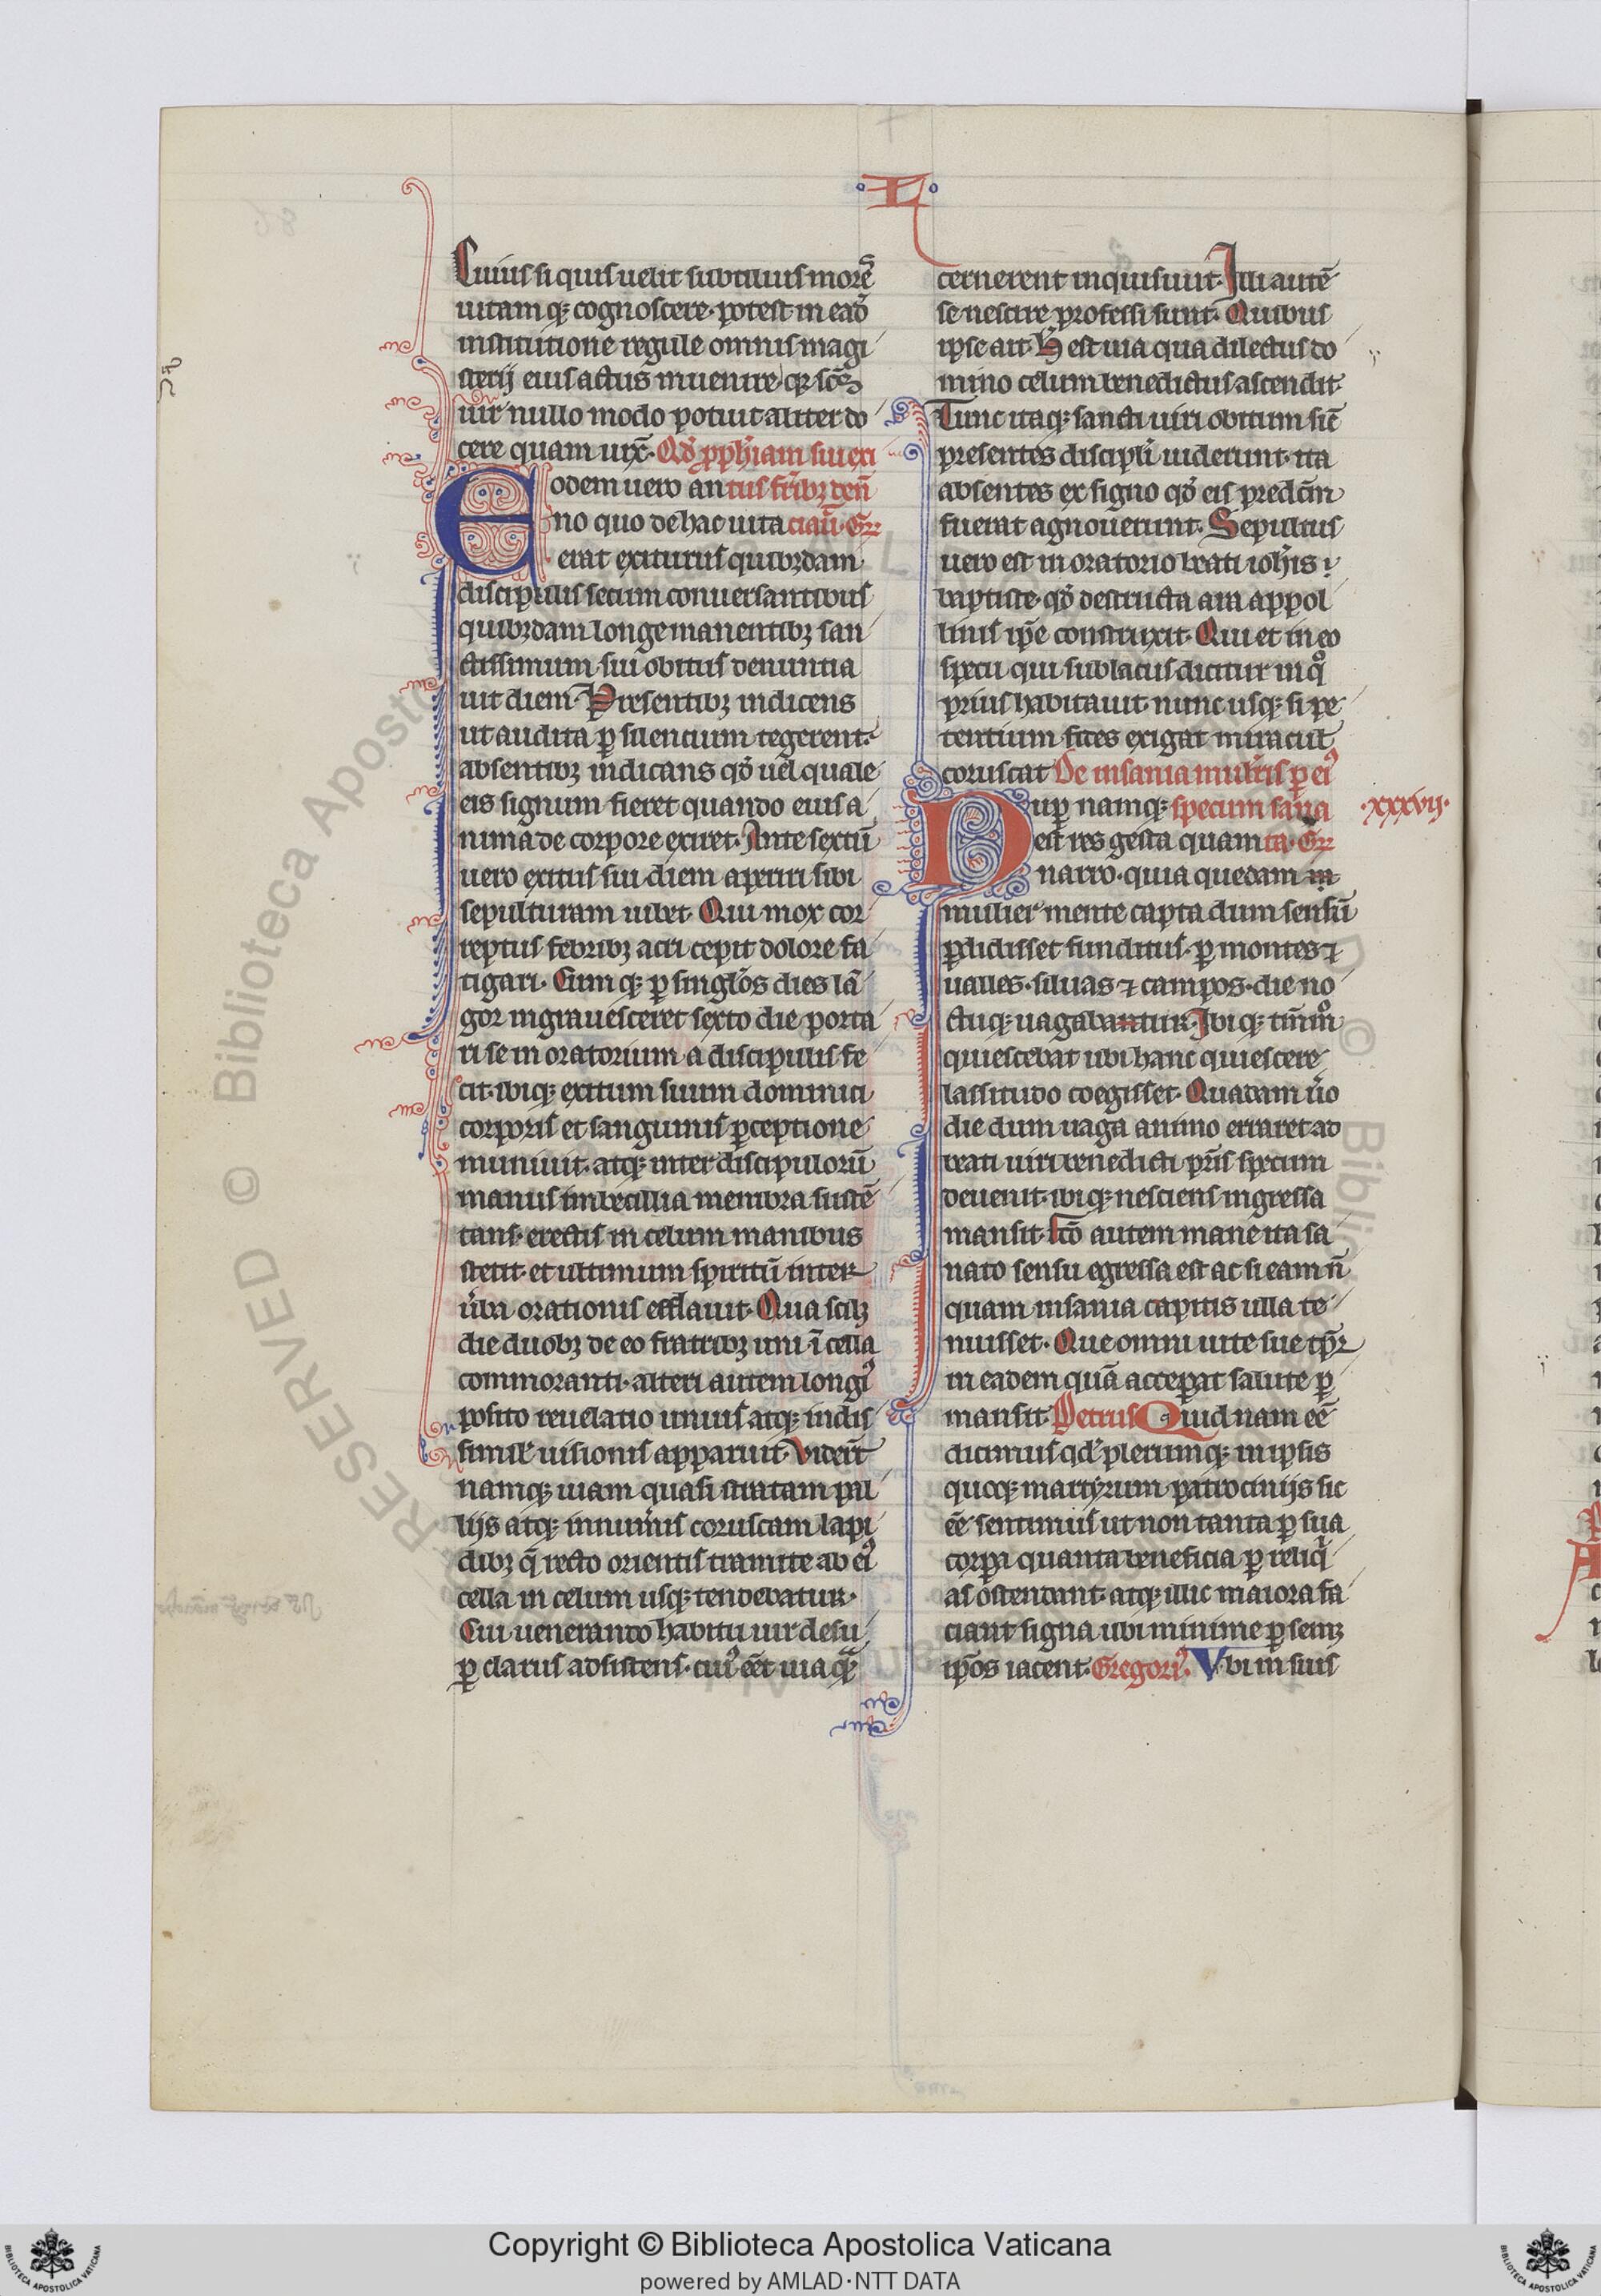 L
Cuius si quis uelit subtilius morē
uitamq; cognoscere. potest in eadē
institutione regule omnis magi
sterij eius actus inuenire. q; scs̄
uir nullo modo potuit aliter do
cere quam uix̄. Qd̄ pph̄iam sui exi
Eodem uero an tus fr̄ibꝫ den̄
no quo de hac uita ciau̅. Gr̄
erat exiturus quibꝫdam
discipulis secum conuersantibus
quibꝫdam longe manentibꝫ san
ctissimum sui obitus denuntia
uit diem. Presentibꝫ indicens
ut audita ꝑ silencium tegerent.
absentibꝫ indicans qd̄ uel quale
eis signum fieret quando eius a
nima de corpore exiret. Ante sextū
uero exitus sui diem aperiri sibi
sepulturam iubet. Qui mox cor
reptus febribꝫ acri cepit dolore fa
tigari. Cumq; ꝑ singlos dies lā
gor ingrauesceret sexto die porta
ri se in oratorium a discipulis fe
cit. ibiq; exitum suum dominici
corporis et sanguinis ꝑceptione
muniuit. atq; inter discipulorū
manus imbecillia membra sustē
tans. erectis in celum manibus
stetit. et ultimum spiritū inter
u̅ba orationis efflauit. Qua scilꝫ
die duobꝫ de eo fratribꝫ uni ī cella
commoranti. alteri autem longiꝰ
posito reuelatio unius atq; indis
similis uisionis apparuit. Viderūt
namq; uiam quasi stratam pal
lijs atq; innum̄is coruscam lapi
dibꝫ q̄ recto orientis tramite ab eiꝰ
cella in celum usq; tendebatur.
Cui uenerando habitu uir desu
ꝑ clarus adsistens. cuiꝰ eēt uia q̄m
cernerent inquisiuit. Illi autē
se nescire professi sunt. Quibus
ipse ait. H̄ est uia qua dilectus do
mino celum benedictus ascendit.
Tunc itaq; sancti uiri obitum sic̄
presentes discipli̅ uiderunt. ita
absentes ex signo qd̄ eis predc̄m
fuerat agnouerunt. Sepultus
uero est in oratorio beati ioh̄is
baptiste. qd̄ destructa ara appol
linis ip̄e construxit. Qui et in eo
specu qui sublacus dicitur in qͦ
prius habitauit. nunc usq; si pe
tentium fides exigat miraculis
coruscat. De insania mulr̄is ꝑ eiꝰ
Dup̄ namq; specum sana .xxxvij.
est res gesta quam ta. Gr̄
narro. quia quedam in
mulier mente capta dum sensū
ꝑdidisset funditus. ꝑ montes ⁊
ualles. siluas ⁊ campos. die no
ctuq; uagabantur. Ibiq; tm̄mͦ
quiescebat ubi hanc quiescere
lassitudo coegisset. Quadam u̅o
die dum uaga animo erraret ad
beati uiri benedicti pr̄is specum
deuenit. ibiq; nesciens ingressa
mansit. Fcō autem mane ita sa
nato sensu egressa est ac si eam n̄
quam insania capitis ulla te
nuisset. Que omni uite sue tp̄r
in eadem quā acceꝑat salute ꝑ
mansit. Petrus Quid nam eē
dicimus qd̓ plerumq; in ipsis
quoq; martyrum patrocinijs sic
eē sentimus ut non tanta ꝑ sua
corpa quanta beneficia ꝑ reliq̄
as ostendant. atq; illic maiora fa
ciant signa ubi minime ꝑ semꝫ
ip̄os iacent. Gregoriꝰ. Vbi in suis
© Biblioteca Apostolica Vaticana
RESERVED
Copyright © Biblioteca Apostolica Vaticana
powered by AMLAD·NTT DATA
BIBLIOTECA APOSTOLICA VATICANA
BIBLIOTECA APOSTOLICA VATICANA